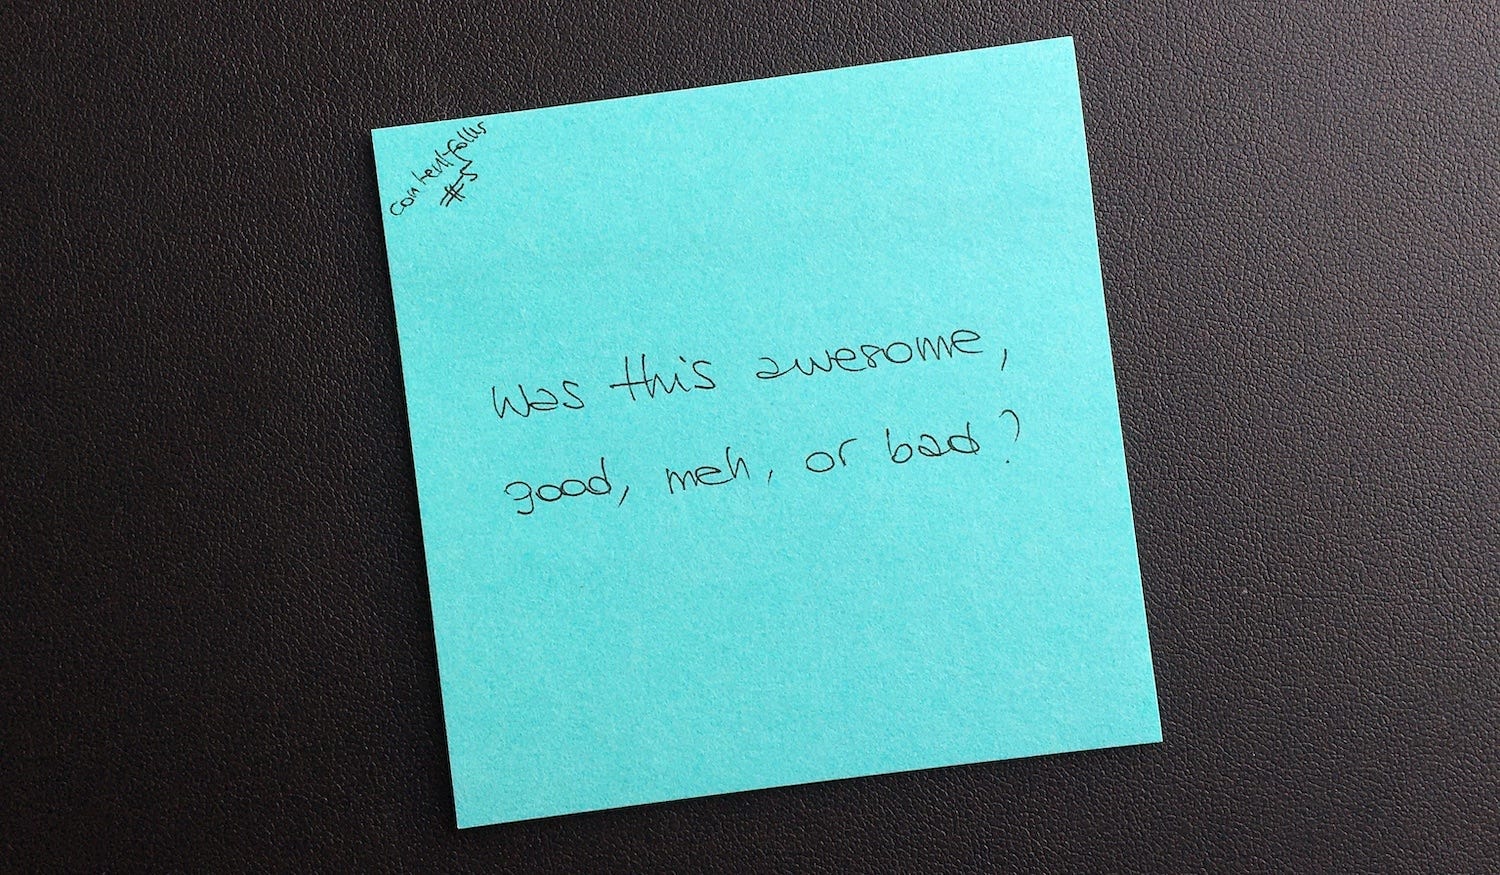 contentfolks
#5
Was this awesome,
good, meh, or bad?